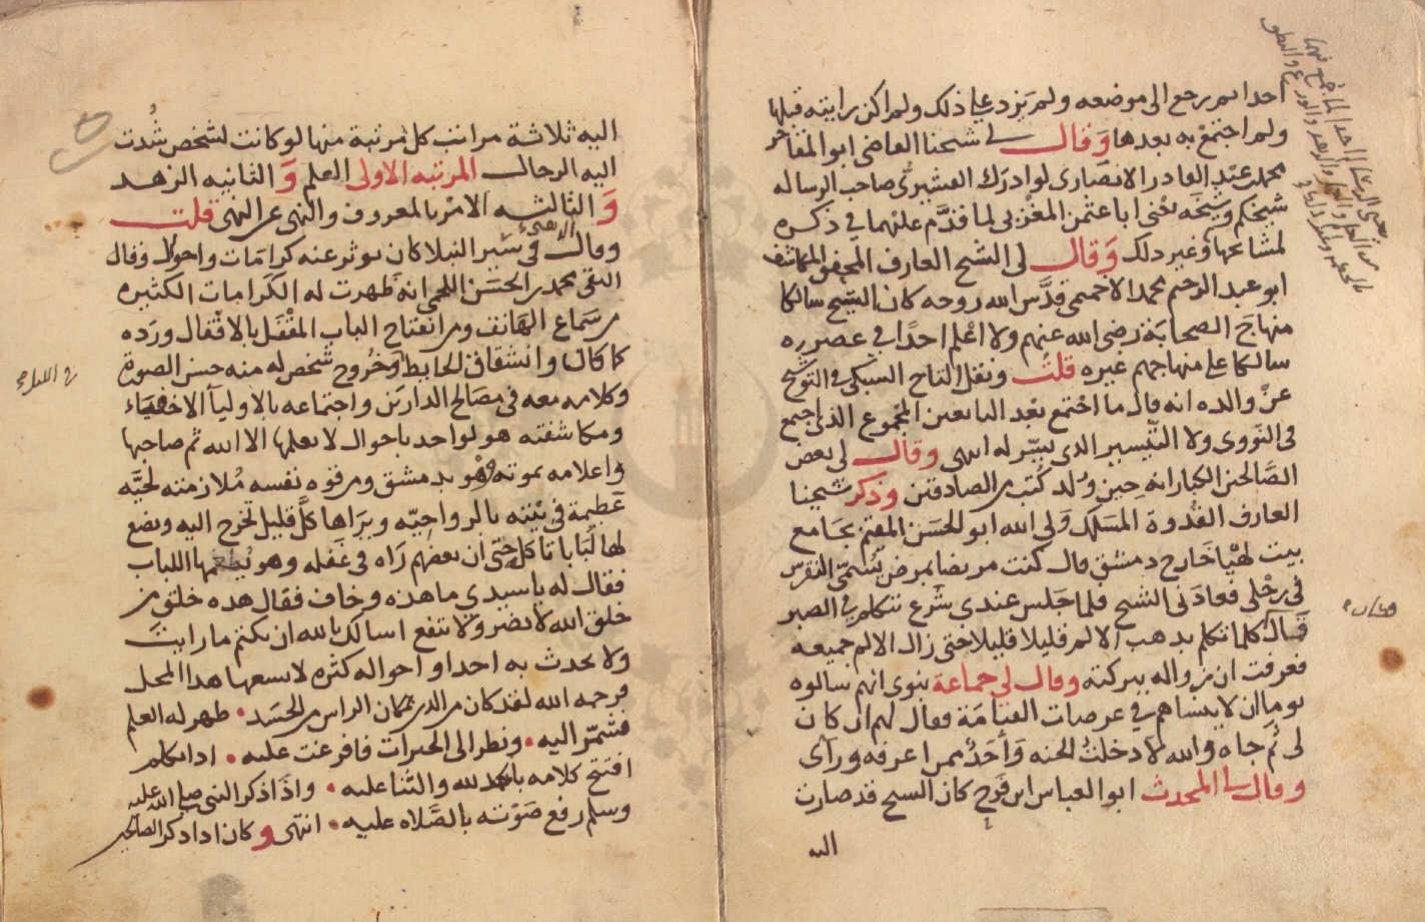 احدا ثم رجع الى موضعه ولم يزد على ذلك ولم اكن رايته قبلها
ولم اجتمع به بعدها وقال لي شيخنا القاضي ابو المفاخر
محمد عبد القادر الانصاري لو ادرك القشيري صاحب الرساله
شيخكم وشيخه يعني ابا عثمن المغربي لما قدم عليهما في ذكره
لمشايخها وغير ذلك وقال لي الشيخ العارف المحقق المكاشف
ابو عبد الرحيم محمد الاخميمي قدس الله روحه كان الشيخ سالكا
منهاج الصحابة رضي الله عنهم ولا اعلم احدا في عصره
سالكا على منهاجهم غيره قلت ونقل التاج السبكي في التوشيح
عن والده انه قال ما اجتمع بعد التابعين المجموع الذي اجتمع
في النووي ولا التيسير الذي يسر له انتهى وقال لي بعض
الصالحين الكبار انه حين ولد كتب من الصادقين وذكر شيخنا
العارف القدوة المسلك ولي الله ابو الحسن المقيم بجامع
بيت لهيا خارج دمشق قال كنت مريضا بمرض يسمى النقرس
في رجلي فعادني الشيخ فلما جلس عندي شرع يتكلم في الصبر
قال كلما تكلم يذهب الالم قليلا قليلا حتى زال الالم جميعه
فعرفت ان زواله ببركته وقال لي جماعة بنوى انهم سالوه
يوما ان لا ينساهم في عرصات القيامة فقال لهم ان كان
لي ثم جاه والله لا دخلت الجنه وأحد ممن اعرفه ورآى
وقال لي المحدث ابو العباس ابن فرح كان الشيخ قد صارت
اليه
وعاده
اليه ثلاثة مراتب كل مرتبة منها لو كانت لشخص شدت
اليه الرحال المرتبه الاولى العلم و الثانيه الزهد
و الثالثه الامر بالمعروف والنهي عن المنكر قلت
وقال الذهبي في سير النبلا كان يوثر عنه كرامات واحوال وقال
التقي محمد بن الحسن اللخمي انه ظهرت له الكرامات الكثيره
من سماع الهاتف ومن انفتاح الباب المقفل بالاقفال ورده
كما كان وانشقاق الحايط وخروج شخص له منه حسن الصورة
وكلامه معه في مصالح الدارين واجتماعه بالاوليآ الاخفياء
ومكاشفته هو لواحد باحوال لا يعلمها الا الله ثم صاحبها
واعلامه بموته وهو بدمشق ومن قوه نفسه ملازمته لحيه
عظيمة في بيته بالرواحيه ويراها كل قليل تخرج اليه ويضع
لها لبابا تاكل حتى ان بعضهم راه في غفله وهو يطعمها اللباب
فقال له يا سيدي ما هذه وخاف فقال هذه خلق من
خلق الله لا تضر ولا تنفع اسالك بالله ان تكتم ما رايت
ولا تحدث به احدا واحواله كثره لا يسعها هذا المحل
فرحمه الله لقد كان من الدين بمكان الراس من الجسد • ظهر له العلم
فشمر اليه • ونظر الى الخيرات فافرغت عليه • اذا تكلم
افتتح كلامه بالحمد لله والثنا عليه • واذا ذكر النبي صلى الله عليه
وسلم رفع صوته بالصلاه عليه • انتهى وكان اذا ذكر الصالحين